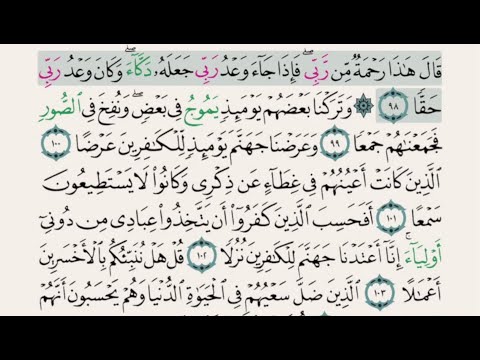 قَالَ هَٰذَا رَحْمَةٌ مِّن رَّبِّي ۖ فَإِذَا جَآءَ وَعْدُ رَبِّي جَعَلَهُۥ دَكَّآءَ ۖ وَكَانَ وَعْدُ رَبِّي
حَقًّا ٩٨ ۞ وَتَرَكْنَا بَعْضَهُمْ يَوْمَئِذٍ يَمُوجُ فِي بَعْضٍ ۖ وَنُفِخَ فِي الصُّورِ
فَجَمَعْنَٰهُمْ جَمْعًا ٩٩ وَعَرَضْنَا جَهَنَّمَ يَوْمَئِذٍ لِّلْكَٰفِرِينَ عَرْضًا ١٠٠
الَّذِينَ كَانَتْ أَعْيُنُهُمْ فِي غِطَآءٍ عَن ذِكْرِي وَكَانُوا۟ لَا يَسْتَطِيعُونَ
سَمْعًا ١٠١ أَفَحَسِبَ الَّذِينَ كَفَرُوٓا۟ أَن يَتَّخِذُوا۟ عِبَادِي مِن دُونِيٓ
أَوْلِيَآءَ ۚ إِنَّآ أَعْتَدْنَا جَهَنَّمَ لِلْكَٰفِرِينَ نُزُلًا ١٠٢ قُلْ هَلْ نُنَبِّئُكُم بِالْأَخْسَرِينَ
أَعْمَٰلًا ١٠٣ الَّذِينَ ضَلَّ سَعْيُهُمْ فِي الْحَيَوٰةِ الدُّنْيَا وَهُمْ يَحْسَبُونَ أَنَّهُمْ